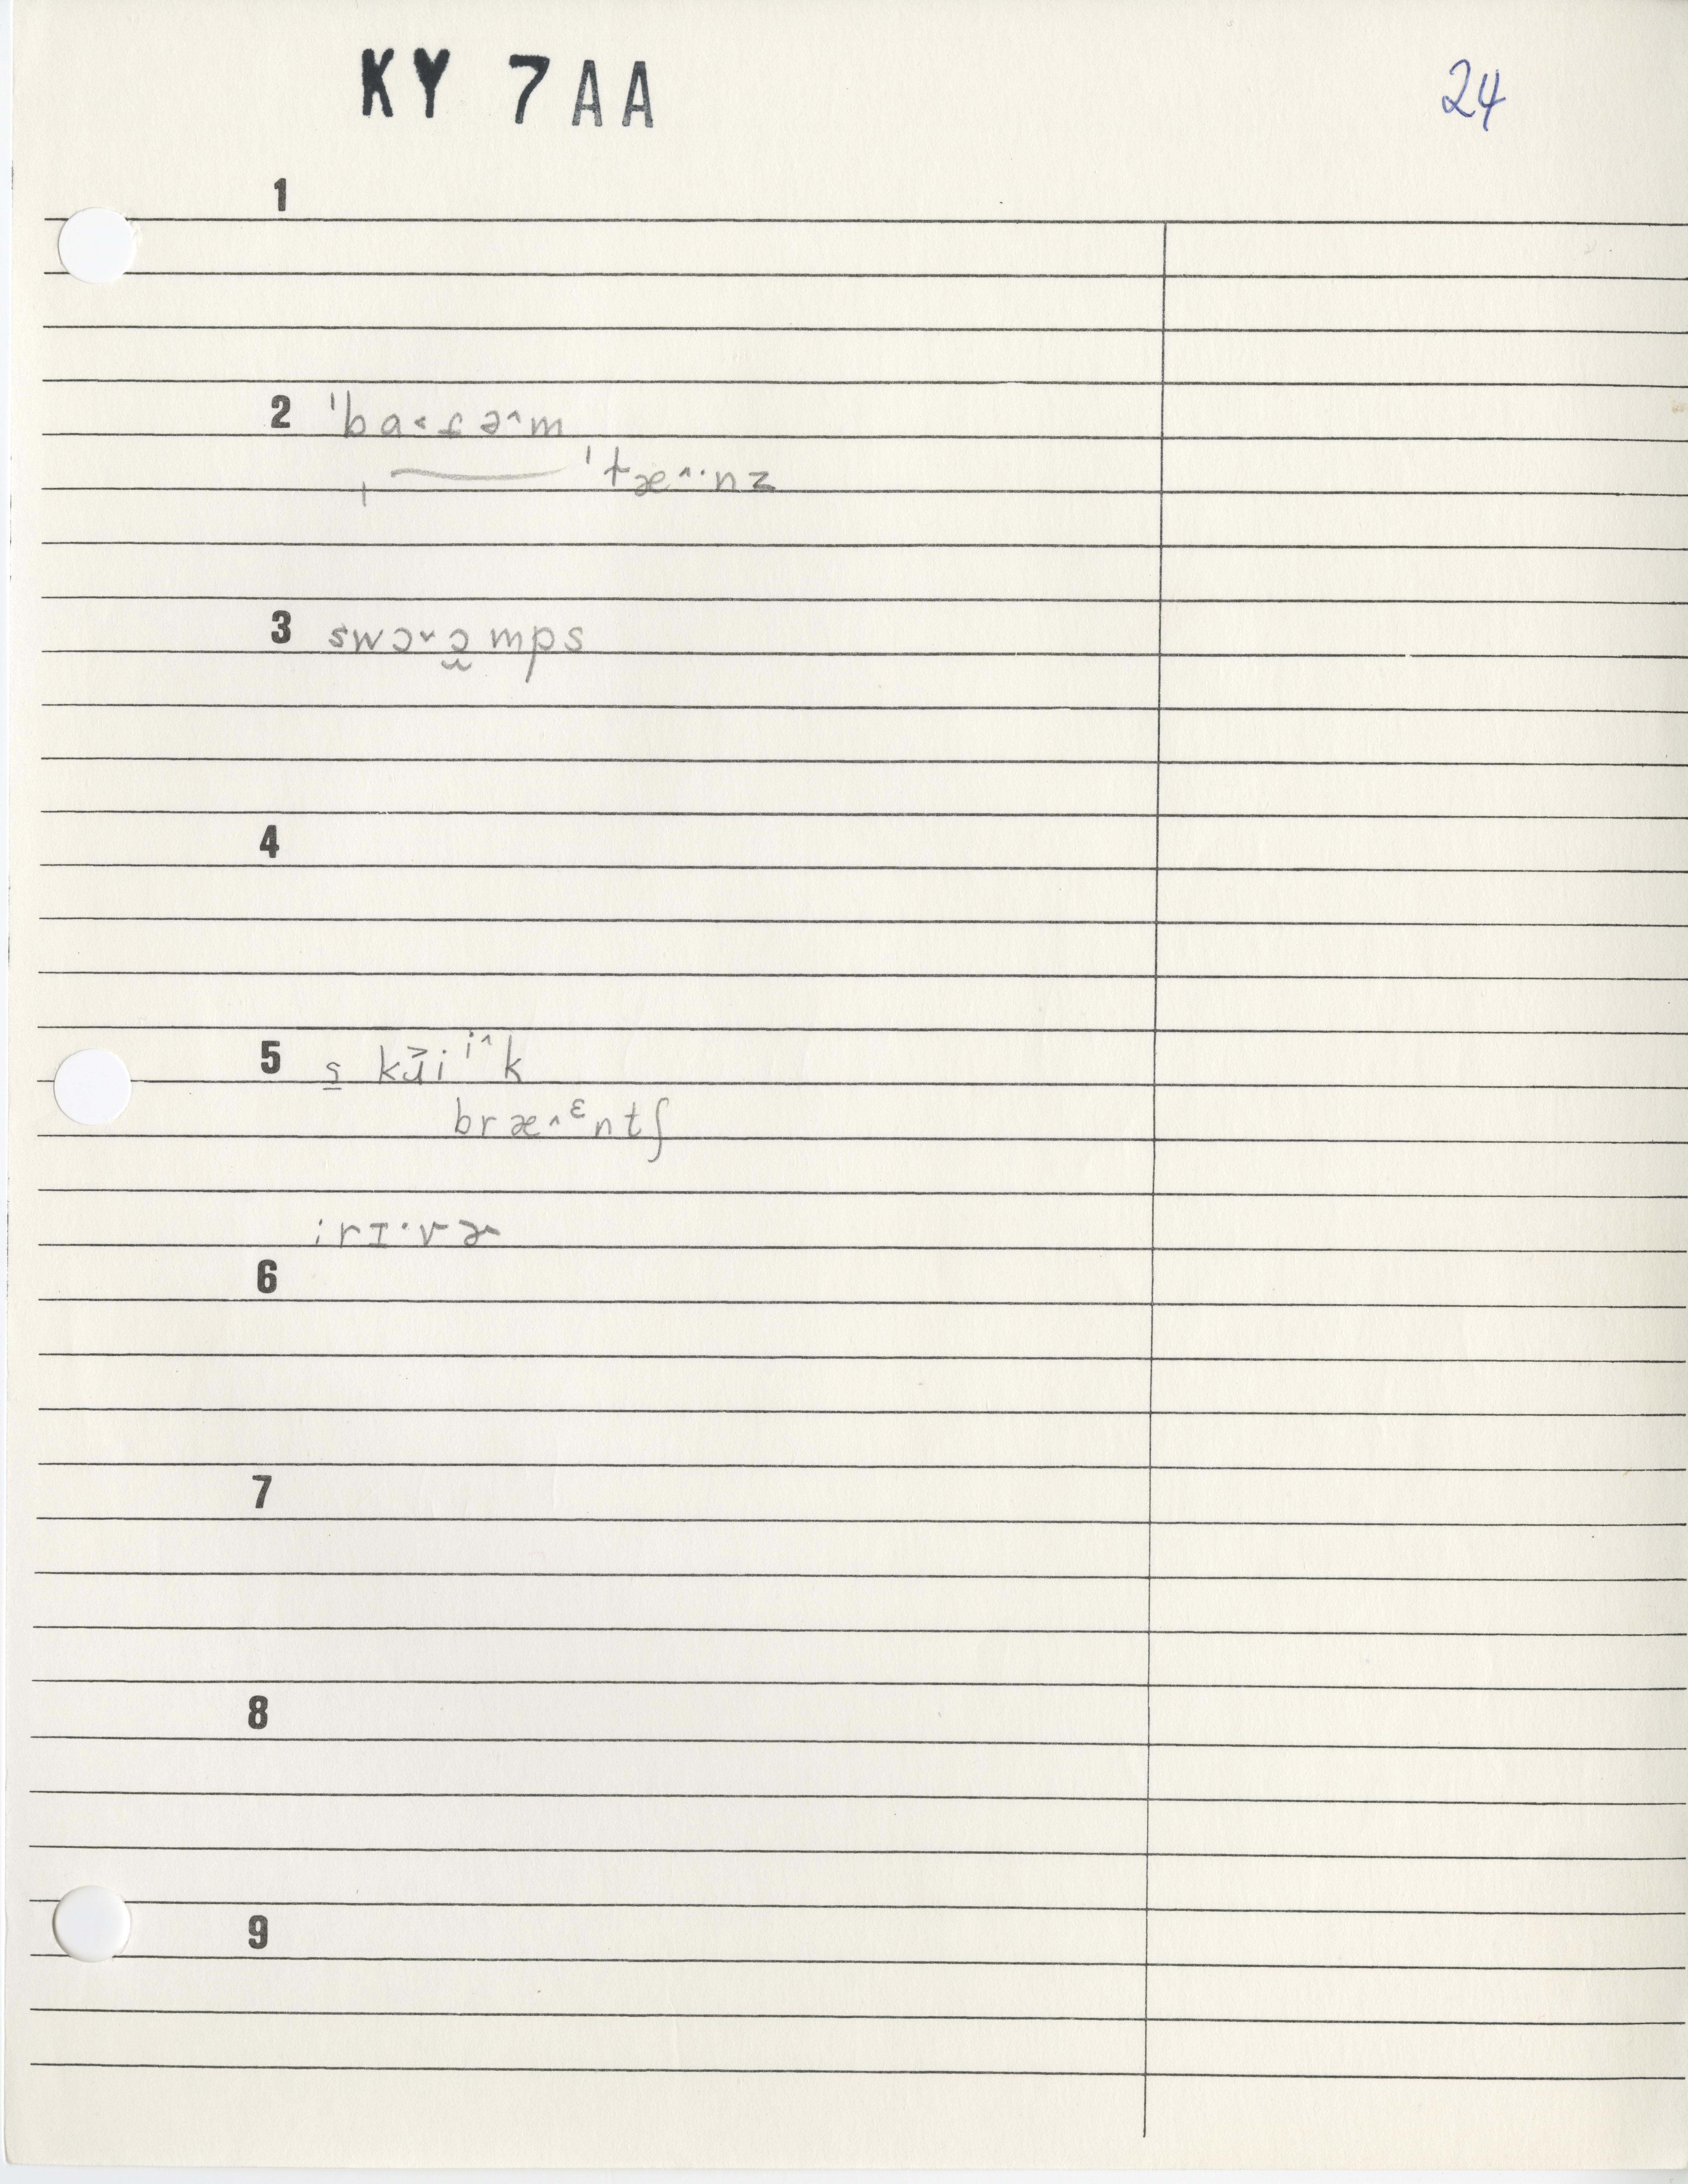 KY 7AA
24
1
2 ˈba˂ɾə^m
ˈtæ^·nz
3 swɔ˅ɔ̯mps
4
5 s̲ kɹ̄i iˆk
bræ^ɛntʃ
ːrɪ·vɚ
6
7
8
9